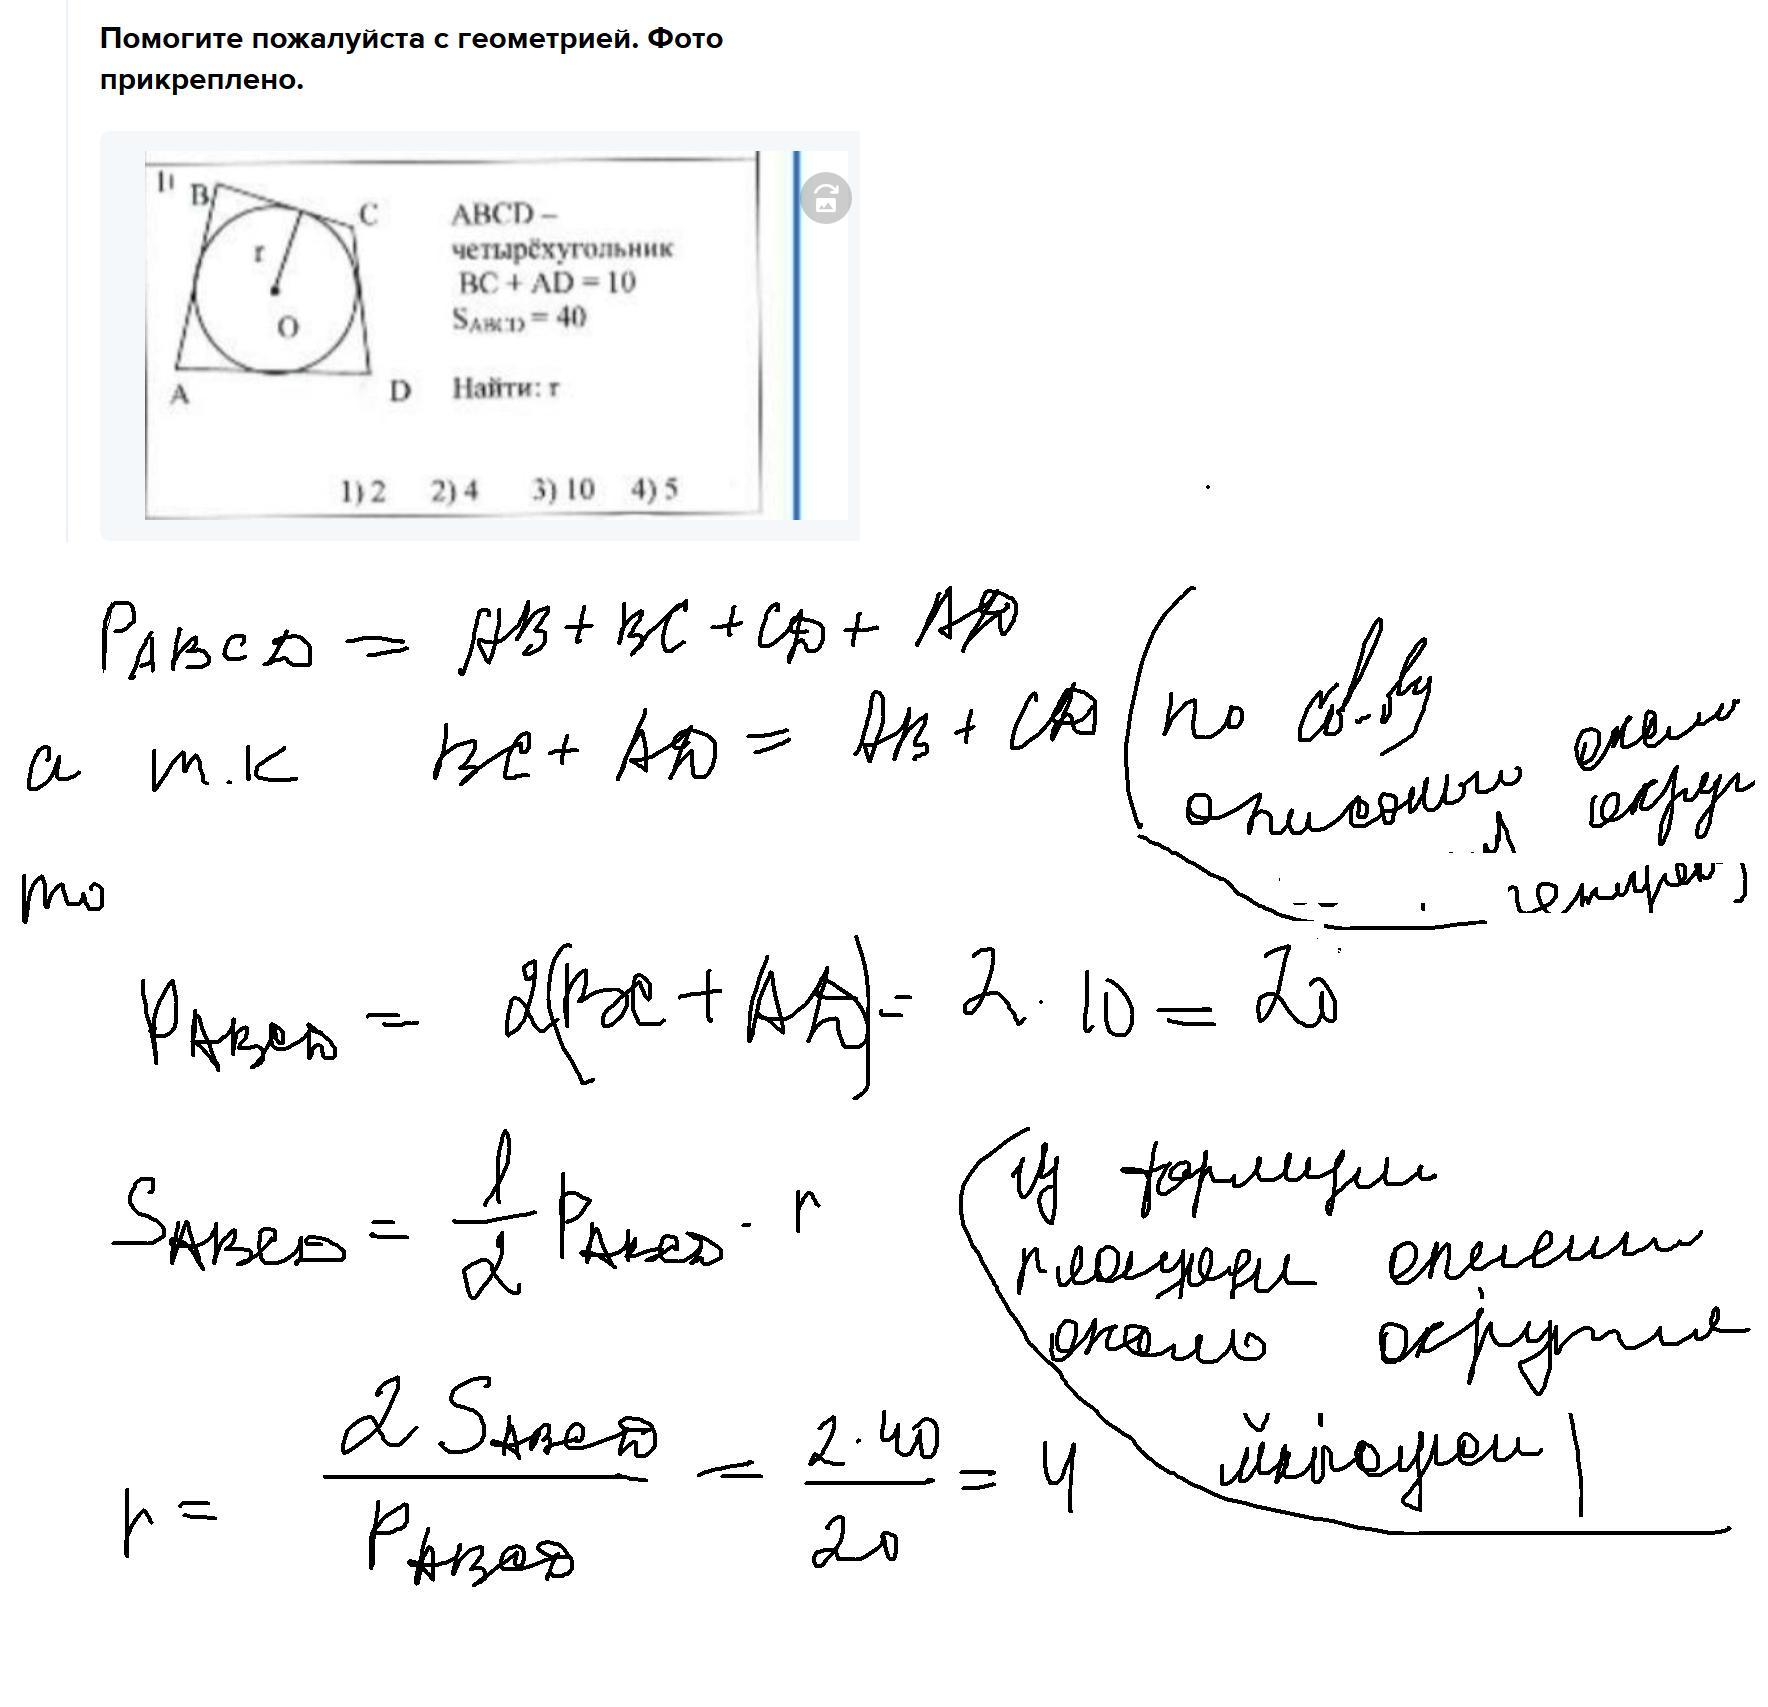 Помогите пожалуйста с геометрией. Фото
прикреплено.
1)
B
C
r
O
A
D
ABCD –
четырёхугольник
BC + AD = 10
SABCD = 40
Найти: r
1) 2 2) 4 3) 10 4) 5
PABCD = AB + BC + CD + AD
а т.к BC + AD = AB + CD (по св-ву
около
то
PABCD = 2(BC + AD) = 2 · 10 = 20
SABCD = 1/2 PABCD · r
(из формулы
площади
около
r = 2 SABCD / PABCD = 2·40 / 20 = 4